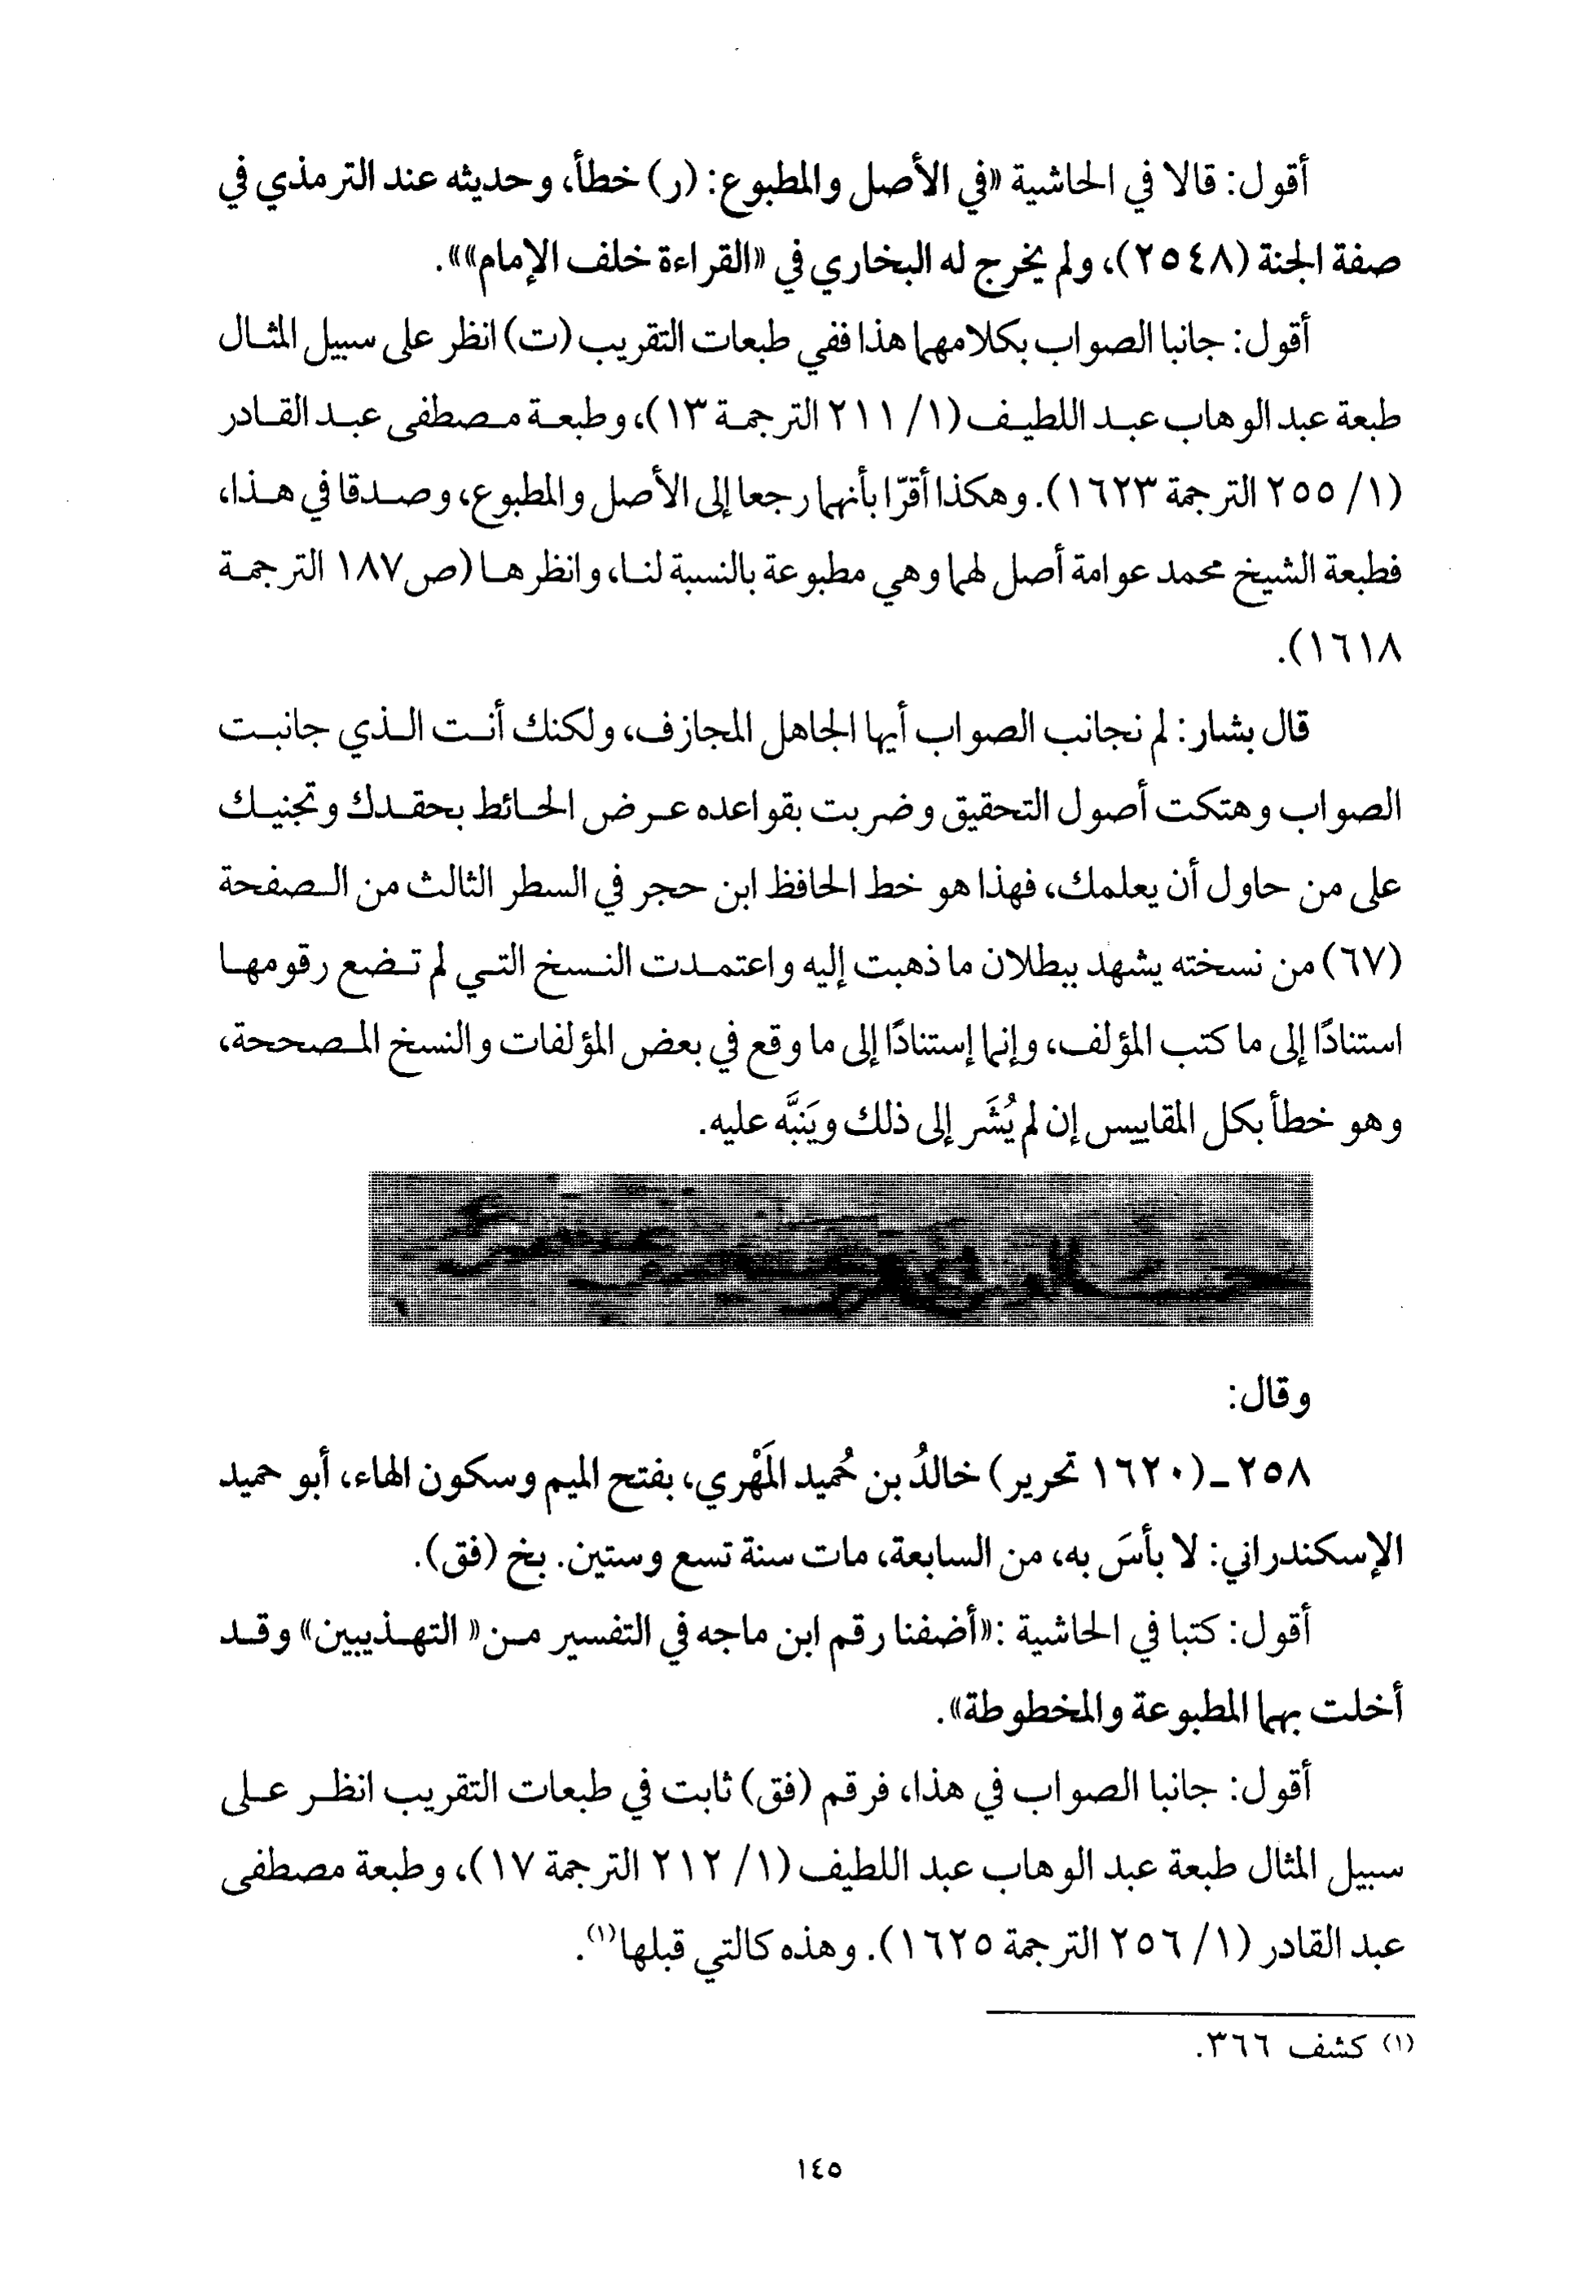 أقول: قالا في الحاشية «في الأصل والمطبوع: (ر) خطأ، وحديثه عند الترمذي في
صفة الجنة (٢٥٤٨)، ولم يخرج له البخاري في «القراءة خلف الإمام»».
أقول: جانبا الصواب بكلامهما هذا ففي طبعات التقريب (ت) انظر على سبيل المثال
طبعة عبد الوهاب عبد اللطيف (١/ ٢١١ الترجمة ١٣)، وطبعة مصطفى عبد القادر
(١/ ٢٥٥ الترجمة ١٦٢٣). وهكذا أقرّا بأنهما رجعا إلى الأصل والمطبوع، وصدقا في هذا،
فطبعة الشيخ محمد عوامة أصل لهما وهي مطبوعة بالنسبة لنا، وانظرها (ص١٨٧ الترجمة
١٦١٨).
قال بشار: لم نجانب الصواب أيها الجاهل المجازف، ولكنك أنت الذي جانبت
الصواب وهتكت أصول التحقيق وضربت بقواعده عرض الحائط بحقدك وتجنيك
على من حاول أن يعلمك، فهذا هو خط الحافظ ابن حجر في السطر الثالث من الصفحة
(٦٧) من نسخته يشهد ببطلان ما ذهبت إليه واعتمدت النسخ التي لم تضع رقومها
استنادًا إلى ما كتب المؤلف، وإنما إستنادًا إلى ما وقع في بعض المؤلفات والنسخ المصححة،
وهو خطأ بكل المقاييس إن لم يُشَر إلى ذلك ويَنبَّه عليه.
وقال:
٢٥٨ـ (١٦٢٠ تحرير) خالدُ بن حُميد المَهْري، بفتح الميم وسكون الهاء، أبو حميد
الإسكندراني: لا بأسَ به، من السابعة، مات سنة تسع وستين. بخ (فق).
أقول: كتبا في الحاشية :«أضفنا رقم ابن ماجه في التفسير من« التهذيبين» وقد
أخلت بهما المطبوعة والمخطوطة».
أقول: جانبا الصواب في هذا، فرقم (فق) ثابت في طبعات التقريب انظر على
سبيل المثال طبعة عبد الوهاب عبد اللطيف (١/ ٢١٢ الترجمة ١٧)، وطبعة مصطفى
عبد القادر (١/ ٢٥٦ الترجمة ١٦٢٥). وهذه كالتي قبلها(١).
(١) كشف ٣٦٦.
١٤٥